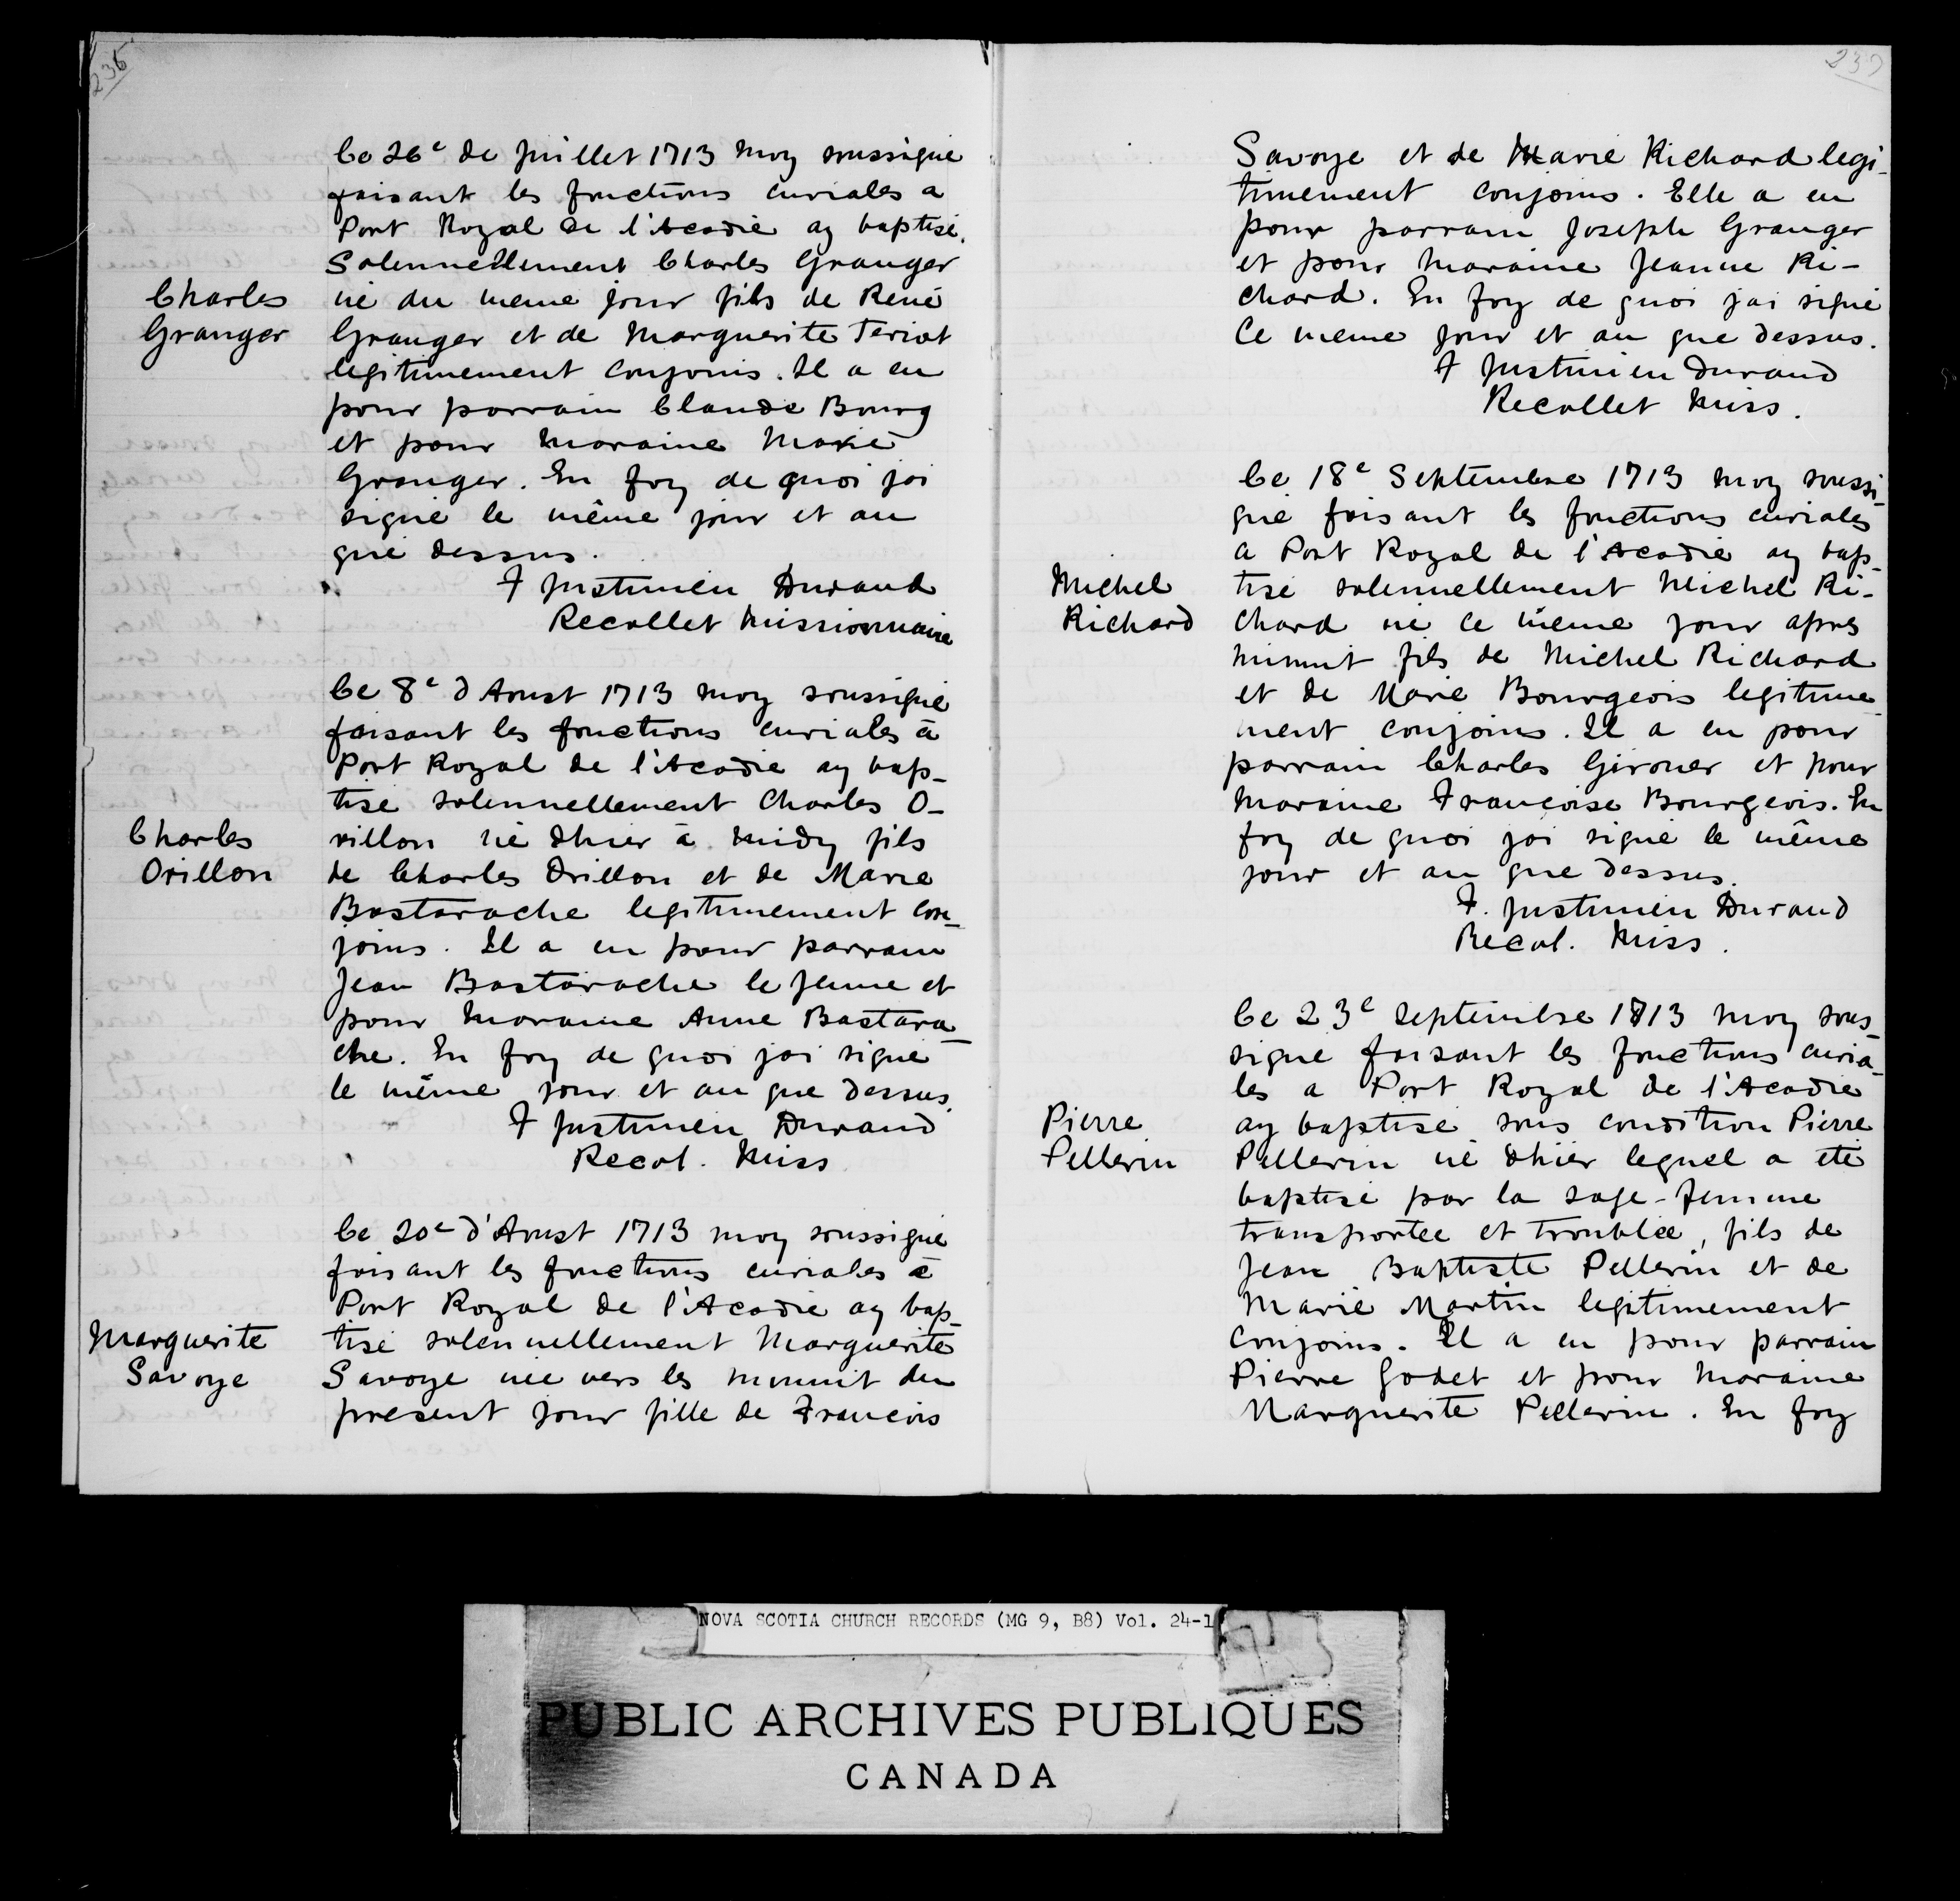 236
Ce 26e de Juillet 1713 moy soussigné
faisant les fonctions curiales a
Port Royal de l'Acadie ay baptisé
Solennellement Charles Granger
Charles
Granger
né du meme jour fils de René
Granger et de Marguerite Teriot
legitimement conjoins. Il a eu
pour parrain Claude Bourg
et pour maraine Marie
Granger. En foy de quoi jai
signé le même jour et an
que dessus.
F Justinien Durand
Recollet Missionnaire
Ce 8e d Aoust 1713 moy soussigné
faisant les fonctions curiales à
Port Royal de l'Acadie ay bap-
tisé solennellement Charles O-
Charles
Orillon
rillon né dhier à midy fils
de Charles Orillon et de Marie
Bastarache legitimement con-
joins. Il a eu pour parrain
Jean Bastarache le Jeune et
pour maraine Anne Bastara-
che. En foy de quoi jai signé
le même jour et an que dessus.
F Justinien Durand
Recol. Miss
Ce 20e d'Aoust 1713 moy soussigné
faisant les fonctions curiales à
Port Royal de l'Acadie ay bap-
Marguerite
Savoye
tisé solennellement Marguerite
Savoye née vers les minuit du
present jour fille de Francois
237
Savoye et de Marie Richard legi-
timement conjoins. Elle a eu
pour parrain Joseph Granger
et pour maraine Jeanne Ri-
chard. En foy de quoi jai signé
Ce meme jour et an que dessus.
F Justinien Durand
Recollet Miss.
Ce 18e Septembre 1713 moy soussi-
gné faisant les fonctions curiales
a Port Royal de l'Acadie ay bap-
Michel
Richard
tisé solennellement Michel Ri-
chard né ce même jour apres
minuit fils de Michel Richard
et de Marie Bourgeois legitime-
ment conjoins. Il a eu pour
parrain Charles Girouer et pour
maraine Françoise Bourgeois. En
foy de quoi jai signé le même
jour et an que dessus.
F. Justinien Durand
Recol. Miss.
Ce 23e Septembre 1713 moy sous-
signé faisant les fonctions curia-
les a Port Royal de l'Acadie
Pierre
Pellerin
ay baptisé sous condition Pierre
Pellerin né dhier lequel a eté
baptisé par la sage-femme
transportée et troublée, fils de
Jean Baptiste Pellerin et de
Marie Martin legitimement
conjoins. Il a eu pour parrain
Pierre Godet et pour maraine
Marguerite Pellerin. En foy
NOVA SCOTIA CHURCH RECORDS (MG 9, B8) Vol. 24-1
PUBLIC ARCHIVES PUBLIQUES
CANADA